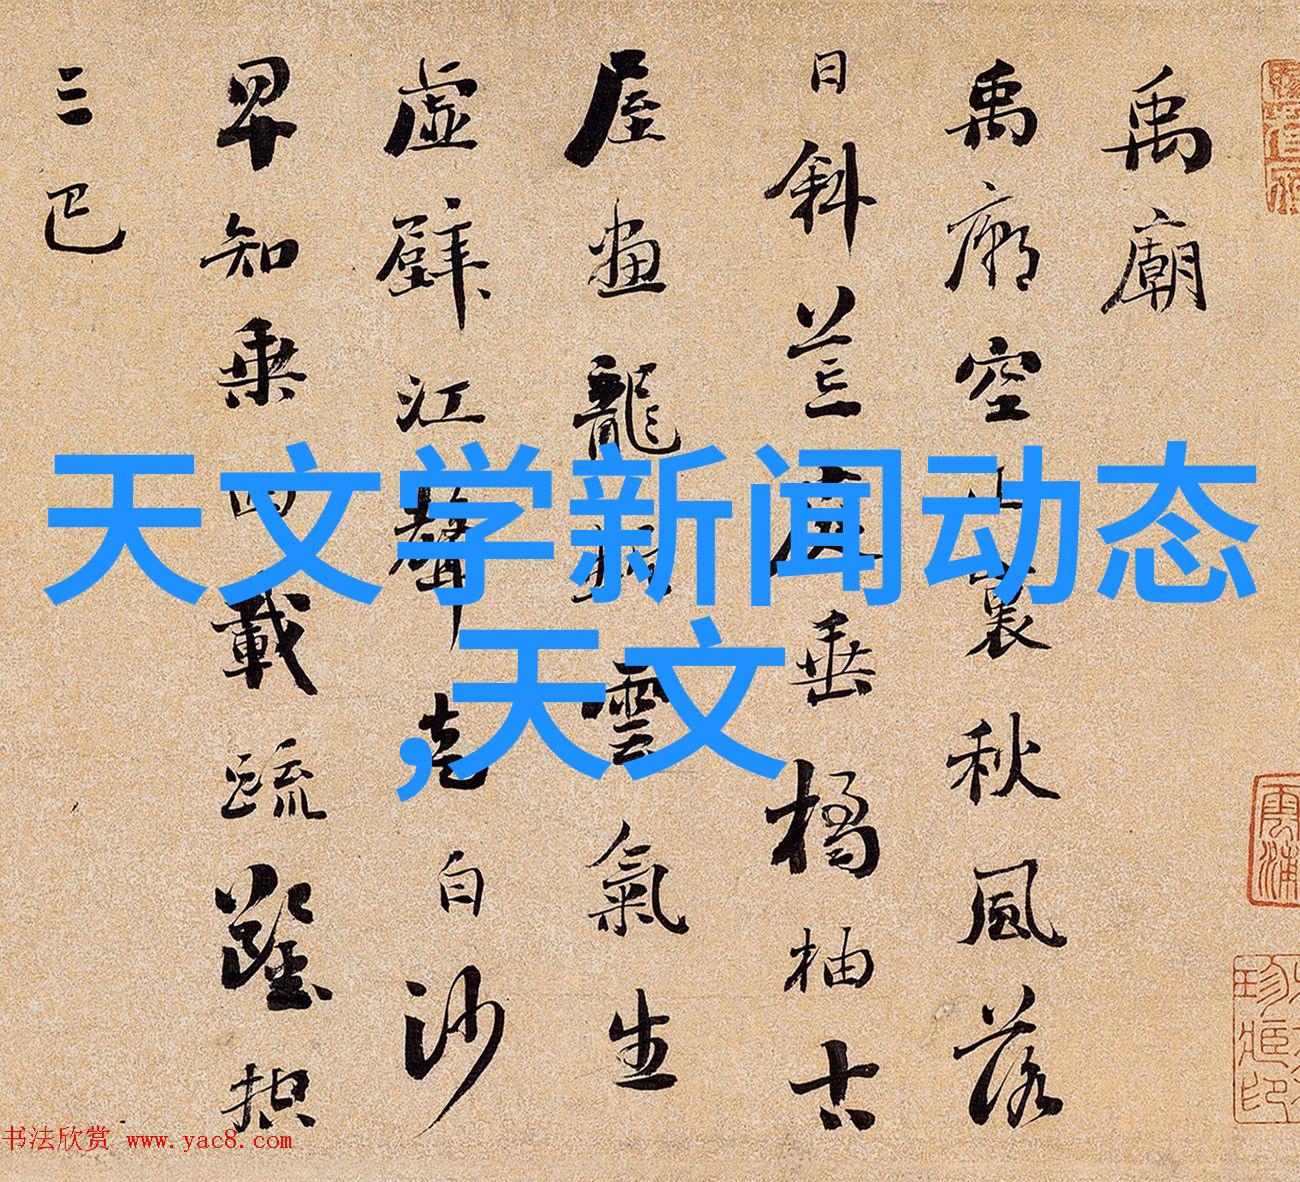 天文学新闻动态
,天文
禹廟
禹廟空山裏秋風落
日斜荒庭垂橘柚古
屋畫龍蛇雲氣生
虚壁江聲走白沙
早知乘四載疏鑿控
三巴
书法欣赏 www.yac8.com